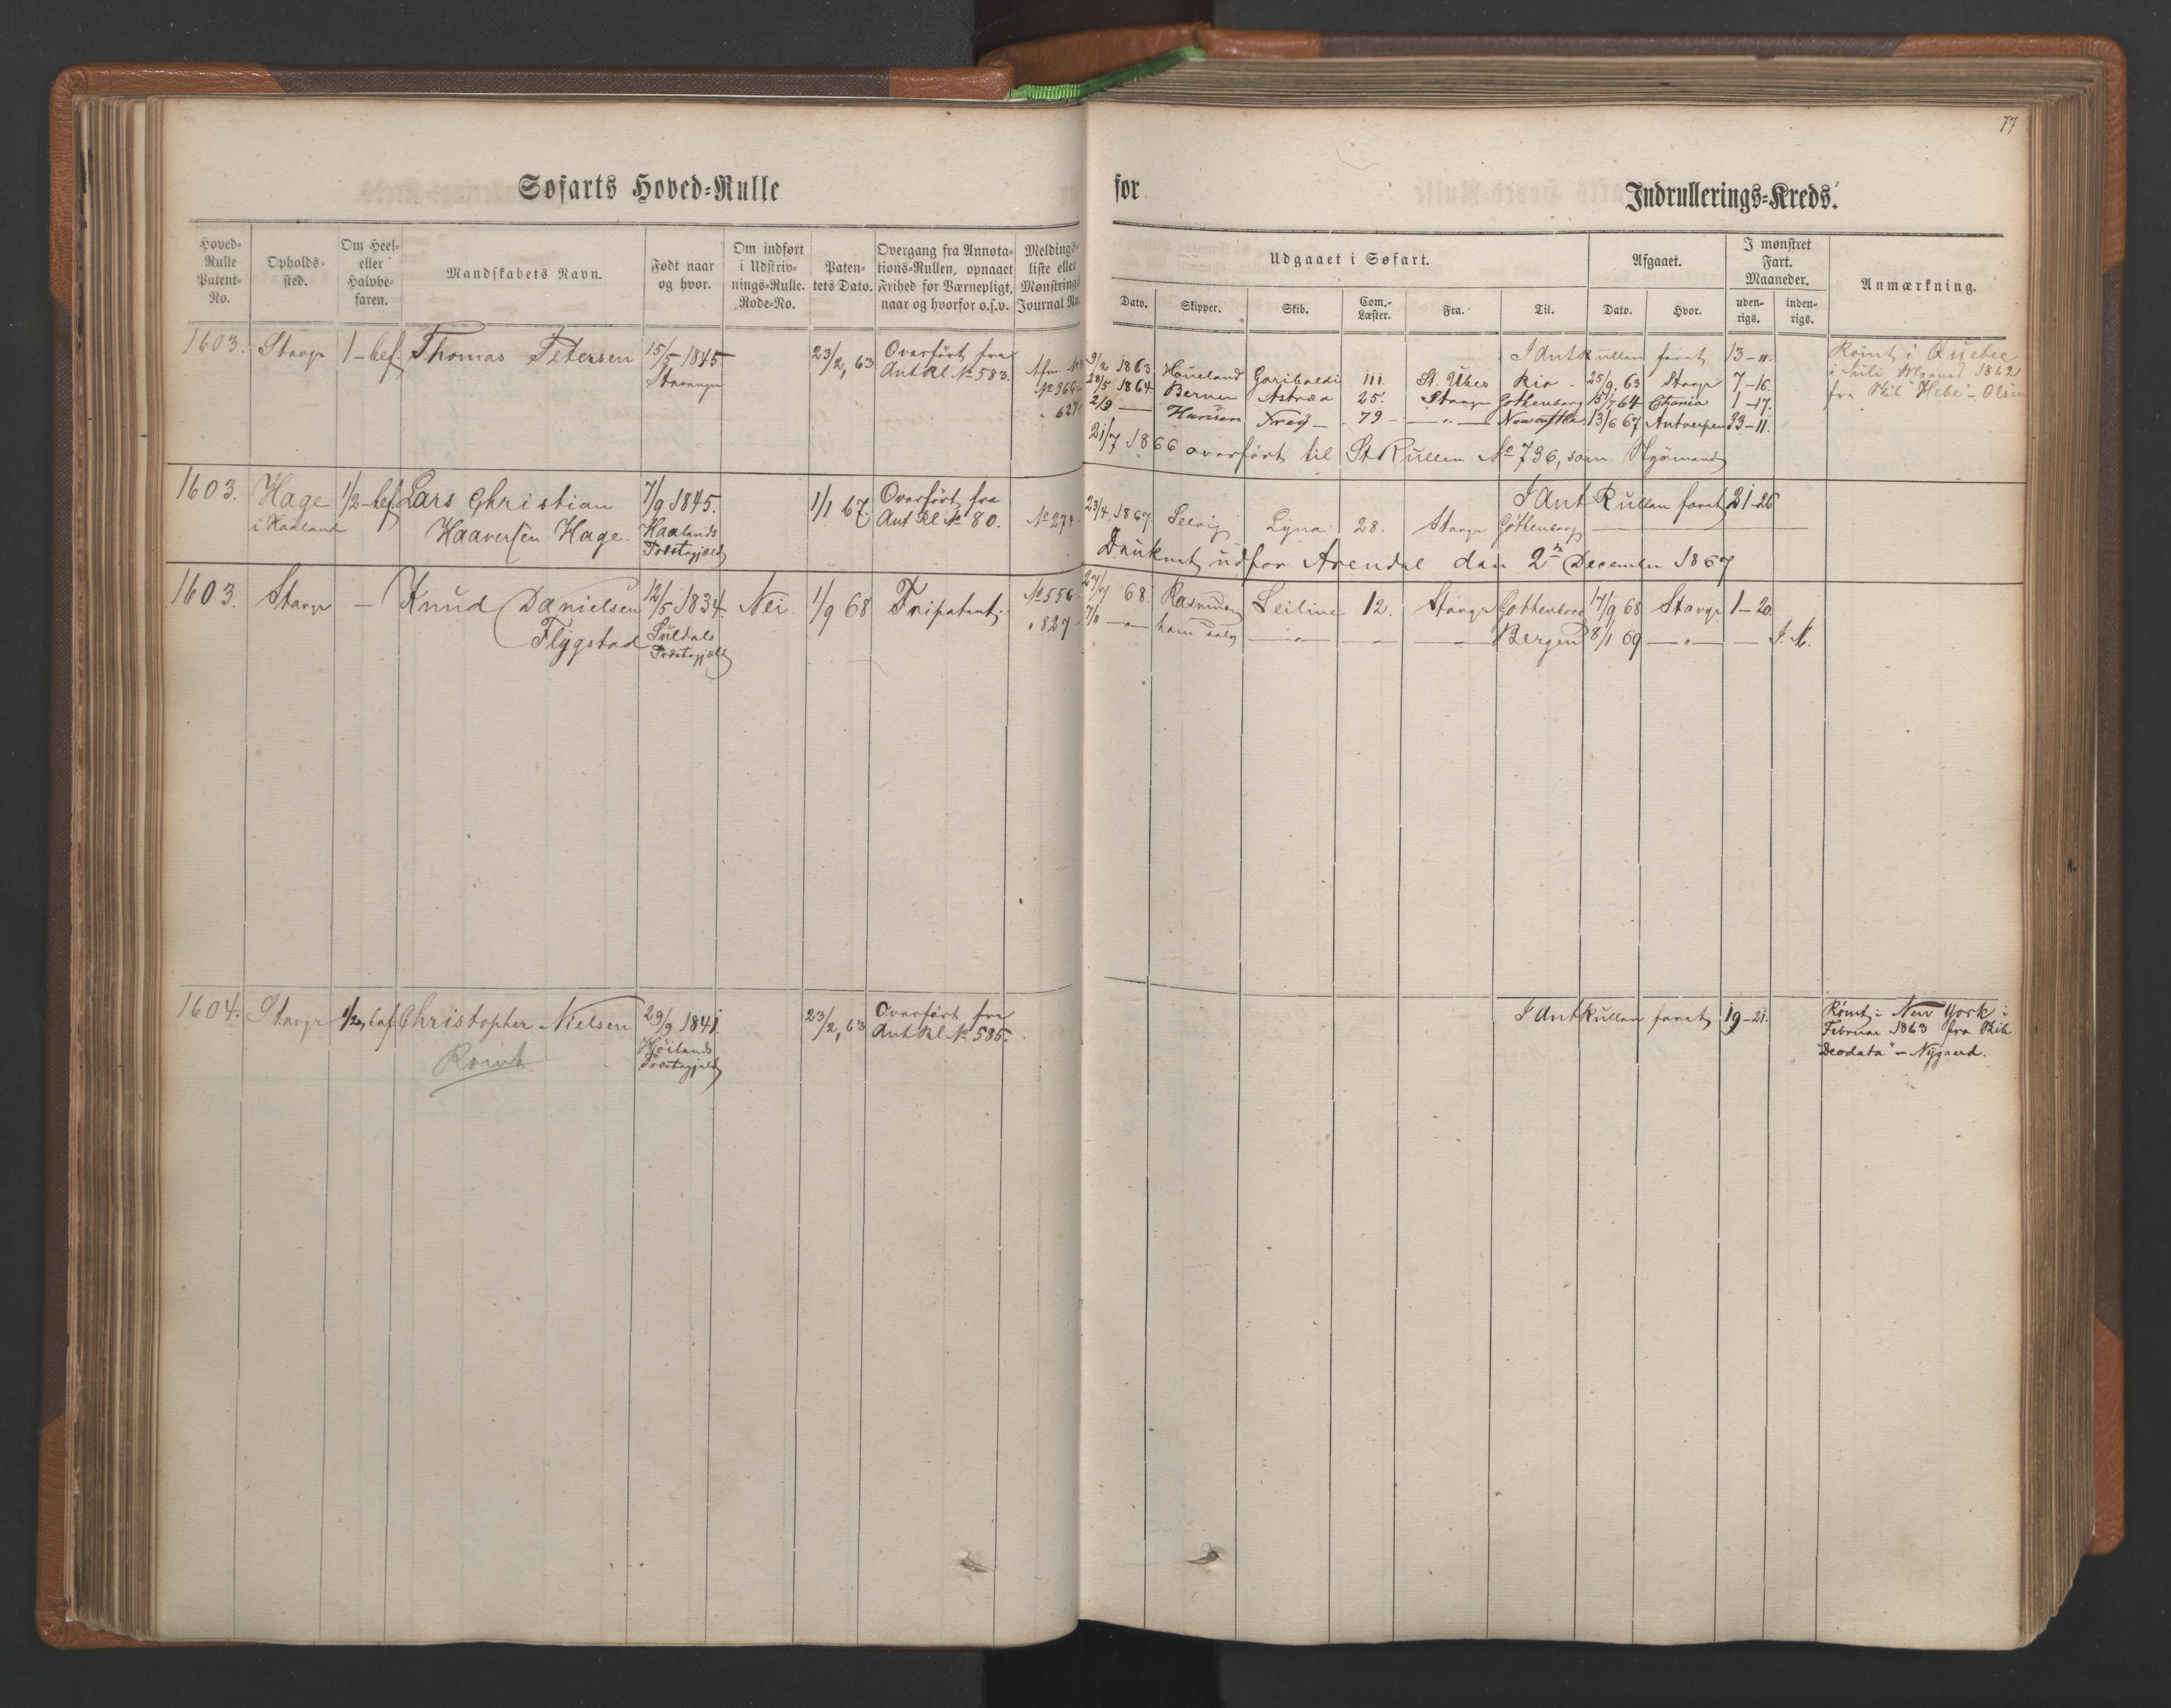 77
Søfarts Hoved-Rulle
for
Indrullerings-Kreds.
Hoved-Rulle Patent-No.
Opholds-sted.
Om Heel- eller Halvbe-faren.
Mandskabets Navn.
Født naar og hvor.
Om indført i Udskriv-nings-Rulle. Rode-No.
Paten-tets Dato.
Overgang fra Annota-tions-Rullen, opnaaet Frihed for Værnepligt, naar og hvorfor o.s.v.
Meldings-liste eller Mønstrings Journal No.
Udgaaet i Søfart.
Dato.
Skipper.
Skib.
Com.-Læster.
Fra.
Til.
Afgaaet.
Dato.
Hvor.
I mønstret Fart. Maaneder.
uden-rigs.
inden-rigs.
Anmærkning.
1603. Stavgr 1-bef. Thomas Petersen 15/5 1845. 23/2, 63 Overført fra
Stavanger Ant Rl. No 583.
No 366
" 627
I AntRullen faret 13-11.
9/2 1863 Haueland Garibaldi 111 St. Ubes Rio - 25/9. 63 Stavgr 7-16
23/5 1864. Berner Astræa 25. Stavgr Gothenborg 15/7 64 Chania 1-17.
2/9 — Hansen Freÿ - 79 - — " — Newcastle 13/6 67 Antverpen 33-11.
21/7 1866 overført til St Rullen No 736, som Styrmand
Rømt i Quebec
i Juli Maaned 1862
fra Skib "Hebe" - Olsen
1603. Hage 1/2-bef. Lars Christian 7/9 1845. 1/1 67. Overført fra
i Haaland Haaversen Hage. Haalands Ant Rl No 80. No 274
Præstegjeld
I Ant Rullen faret 21-26
23/4 1867. Selvig Lyna 28. Stavgr Göthenborg
Druknet udfor Arendal den 2n December 1867
1603. Stavgr - Knud Danielsen 12/5 1834. Nei. 1/9 68 Fripatent. No 556
Flygstad Suldals " 827
Præstegjeld
27/7 68 Rasmus Leiline 12. Stavgr Gothenborg 17/9 68 Stavgr 1-20
7/11 — " — — " — — — Bergen 8/1 69 — " — — I. M.
1604. Stavgr 1/2 bef Christopher Nielsen 29/9 1841. 23/2, 63 Overført fra
Rømt Høilands Ant Rl. No 585.
Præstegjeld
I AntRullen faret 19-21.
Rømt i New York i
Februar 1863 fra Skib
"Deodata" - Nygaard.